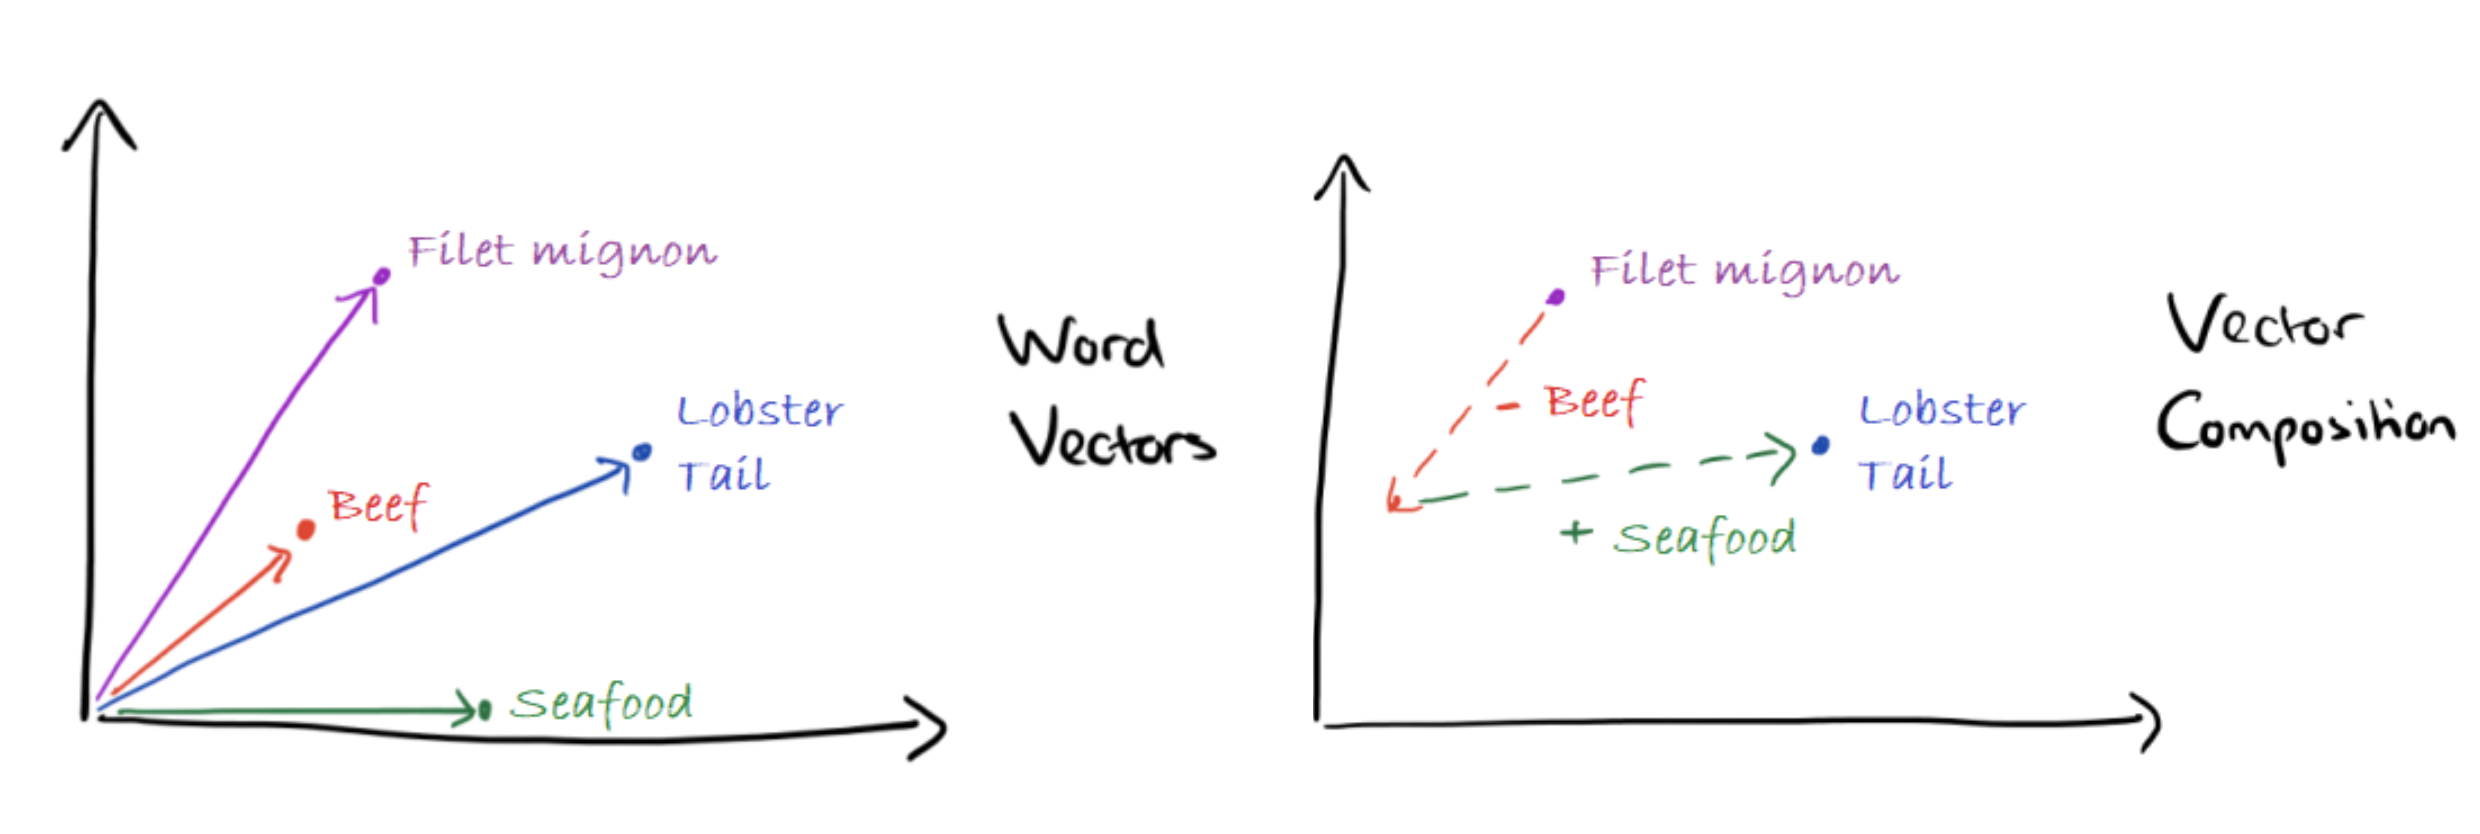 Filet mignon
Lobster
Tail
Beef
Seafood
Word
Vectors
Filet mignon
- Beef
Lobster
Tail
+ Seafood
Vector
Composition